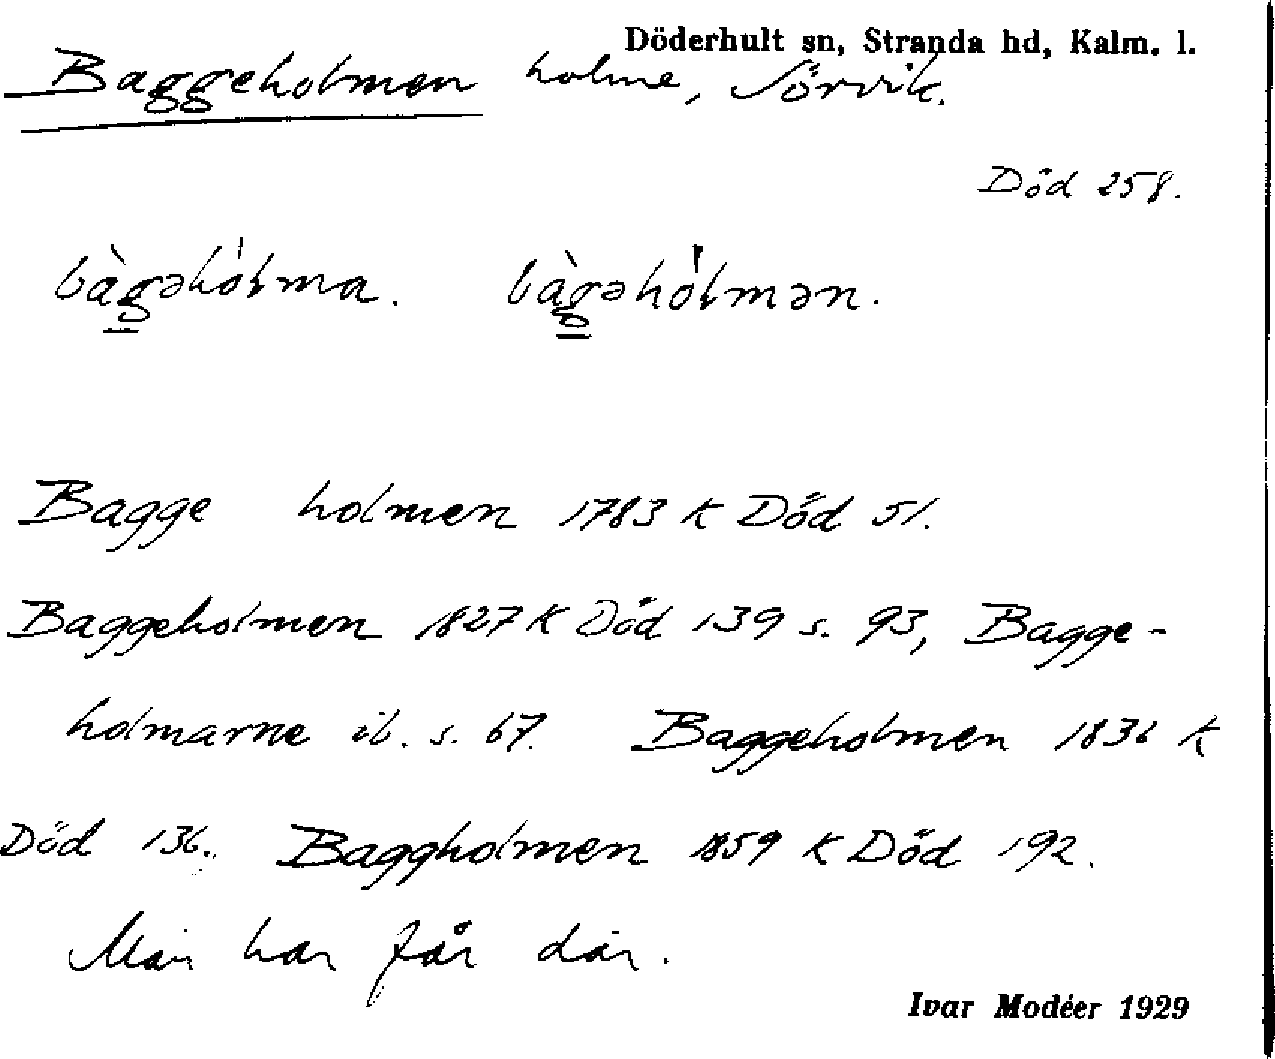 Döderhult sn, Stranda hd, Kalm. l.
Baggeholmen holme, Sörvik.
Död 258.
bàgəhòlma. bàgəhòlmən.
Bagge holmen 1783 K Död 51.
Baggeholmen 1827 K Död 139 s. 93, Bagge-
holmarne ib. s. 67. Baggeholmen 1836 K
Död 136. Baggholmen 1859 K Död 192.
Man har får där.
Ivar Modéer 1929